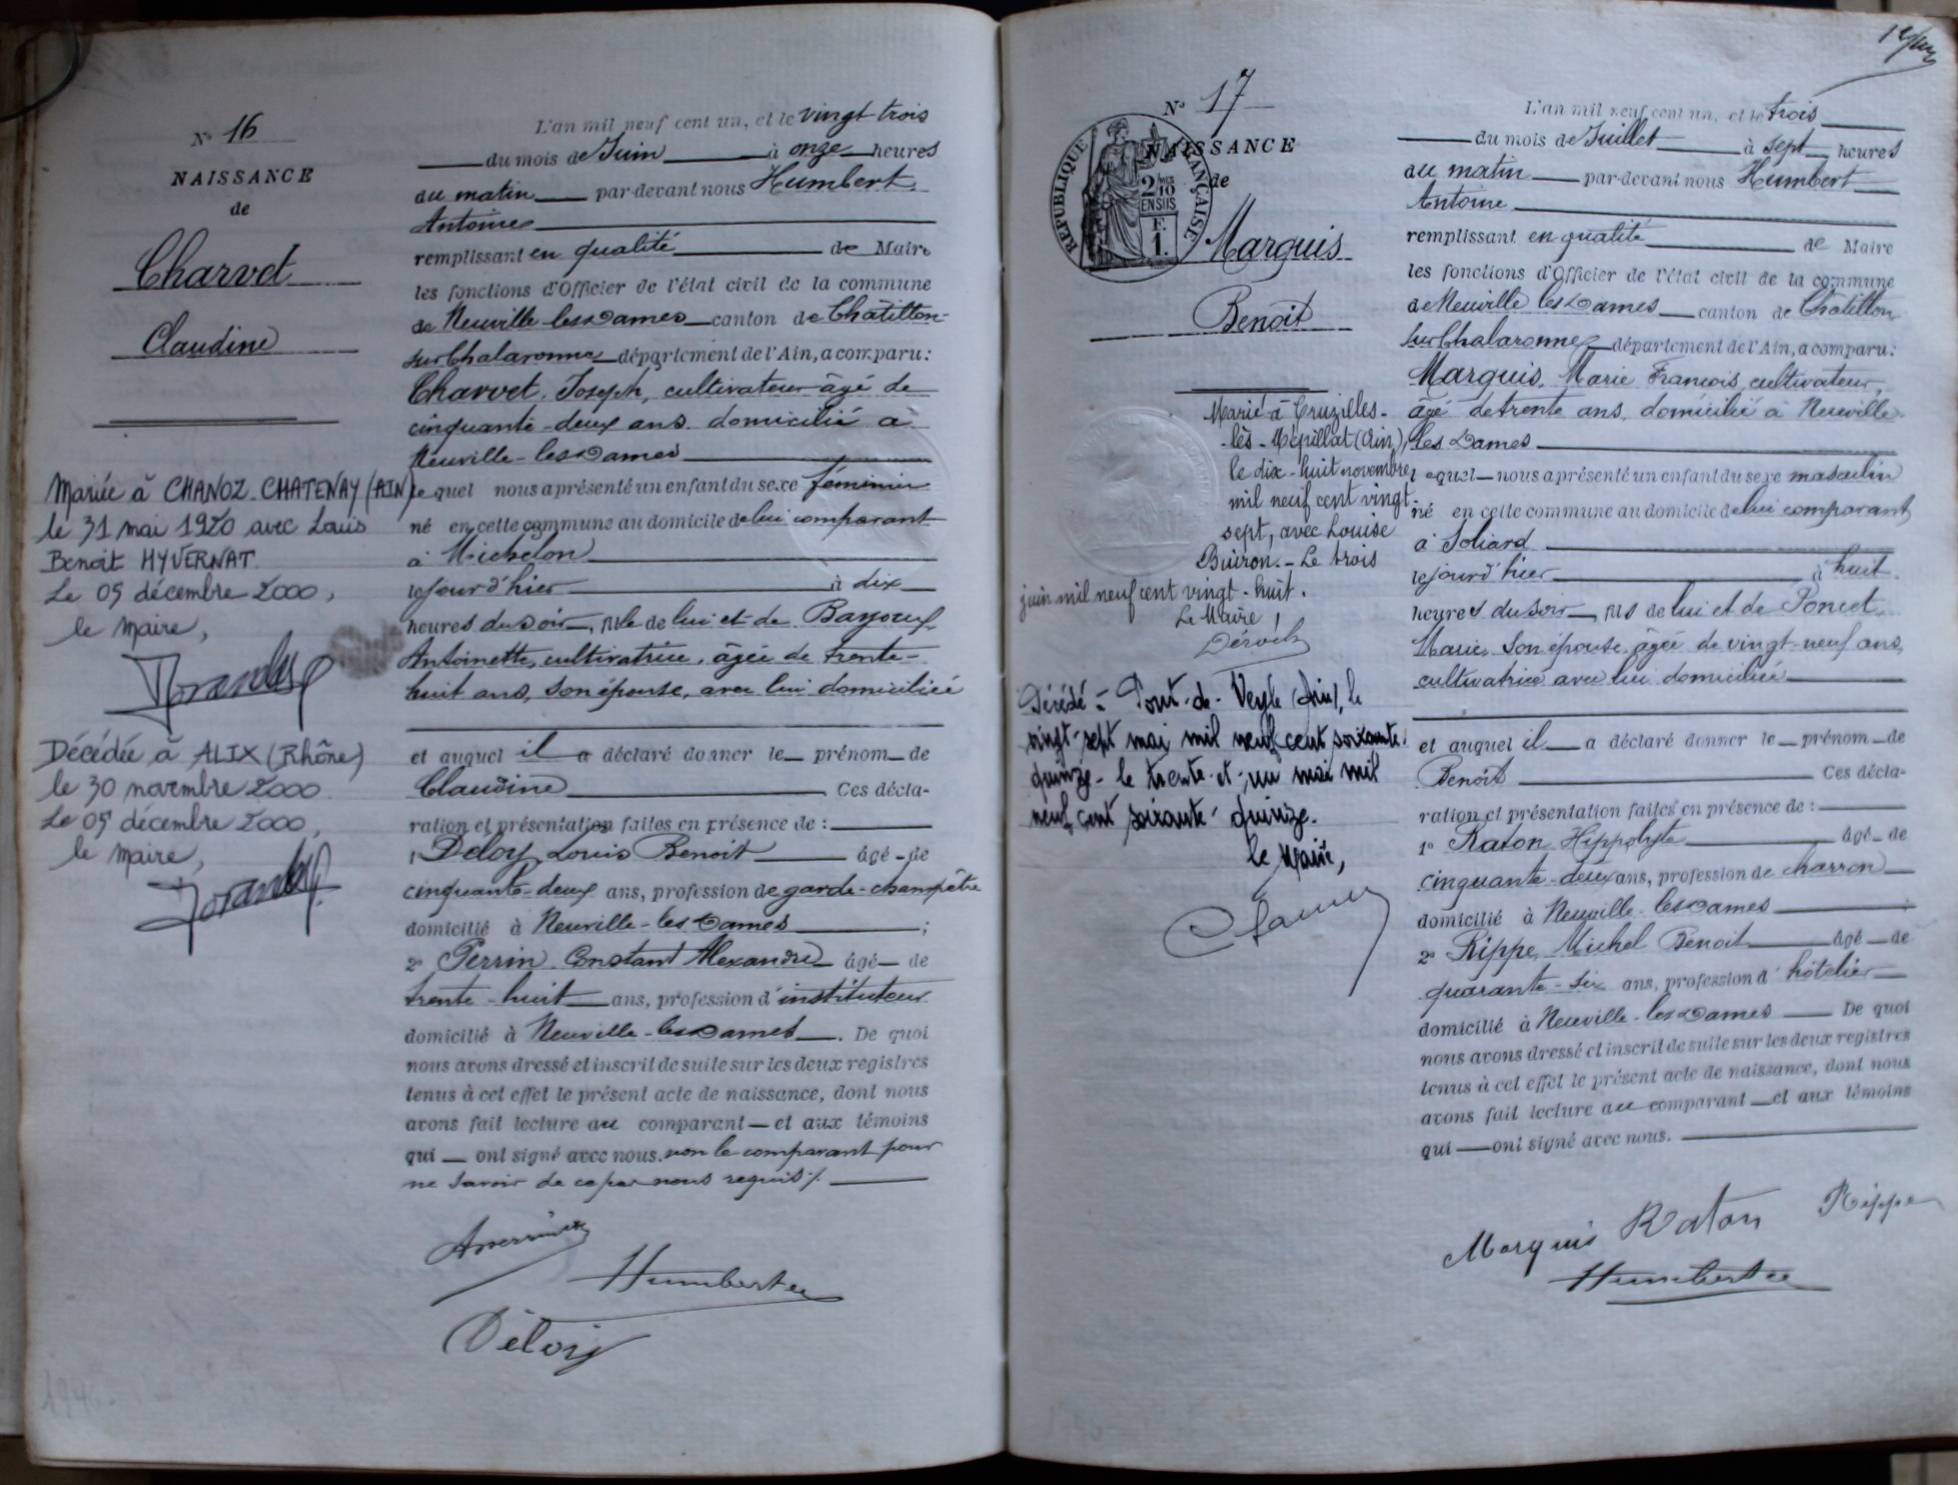 N° 16
NAISSANCE
de
Charvet
Claudine
Mariée à CHANOZ-CHATENAY (AIN)
le 31 mai 1920 avec Louis
Benoit HYVERNAT
Le 05 décembre 2000,
le Maire,
Décédée à ALIX (Rhône)
le 30 novembre 2000
Le 05 décembre 2000,
le Maire,
L'an mil neuf cent un, et le vingt trois
du mois de Juin à onze heures
du matin par-devant nous Humbert
Antoine
remplissant en qualité de Maire
les fonctions d'Officier de l'état civil de la commune
de Neuville-les-Dames canton de Châtillon-
sur Chalaronne département de l'Ain, a comparu:
Charvet Joseph, cultivateur âgé de
cinquante-deux ans domicilié à
Neuville-les-Dames
le quel nous a présenté un enfant du sexe féminin
né en cette commune au domicile de lui comparant
à Michelon
le jour d'hier à dix
heures du soir, fille de lui et de
Antoinette, cultivatrice, âgée de trente-
huit ans, son épouse, avec lui domiciliée
et auquel il a déclaré donner le prénom de
Claudine Ces décla-
ration et présentation faites en présence de :
1° Deloy Louis Benoit âgé de
cinquante-deux ans, profession de garde-champêtre
domicilié à Neuville-les-Dames ;
2° Perrin Constant Alexandre âgé de
trente-huit ans, profession d'instituteur
domicilié à Neuville-les-Dames. De quoi
nous avons dressé et inscrit de suite sur les deux registres
tenus à cet effet le présent acte de naissance, dont nous
avons fait lecture au comparant et aux témoins
qui ont signé avec nous. non le comparant pour
ne savoir de ce par nous requis /.
Humbert
Déloy
N° 17
NAISSANCE
de
RÉPUBLIQUE FRANÇAISE
2/10 EN SUS
F. 1.
Marquis
Benoît
Marié à Cruzilles-
-lès-Mépillat (Ain)
le dix-huit novembre
mil neuf cent vingt-
sept, avec Louise
Buiron. - Le trois
juin mil neuf cent vingt-huit.
Le Maire,
Décédé à Pont-de-Veyle (Ain), le
vingt-sept mai mil neuf cent soixante-
quinze - le trente-et-un mai mil
neuf cent soixante-quinze.
le Maire,
L'an mil neuf cent un, et le trois
du mois de Juillet à sept heures
du matin par-devant nous Humbert
Antoine
remplissant en qualité de Maire
les fonctions d'Officier de l'état civil de la commune
de Neuville les Dames canton de Châtillon
sur Chalaronne département de l'Ain, a comparu:
Marquis, Marie François cultivateur,
âgé de trente ans, domicilié à Neuville
les Dames
lequel nous a présenté un enfant du sexe masculin
né en cette commune au domicile de lui comparant
à Soliard
le jour d'hier à huit
heures du soir, fils de lui et de Poncet
Marie, son épouse, âgée de vingt-neuf ans,
cultivatrice avec lui domiciliée
et auquel il a déclaré donner le prénom de
Benoît Ces décla-
ration et présentation faites en présence de :
1° Raton Hippolyte âgé de
cinquante-deux ans, profession de charron
domicilié à Neuville-les-Dames ;
2° Rippe Michel Benoit âgé de
quarante-six ans, profession d'hôtelier
domicilié à Neuville-les-Dames De quoi
nous avons dressé et inscrit de suite sur les deux registres
tenus à cet effet le présent acte de naissance, dont nous
avons fait lecture au comparant et aux témoins
qui ont signé avec nous.
Marquis Raton Rippe
Humbert